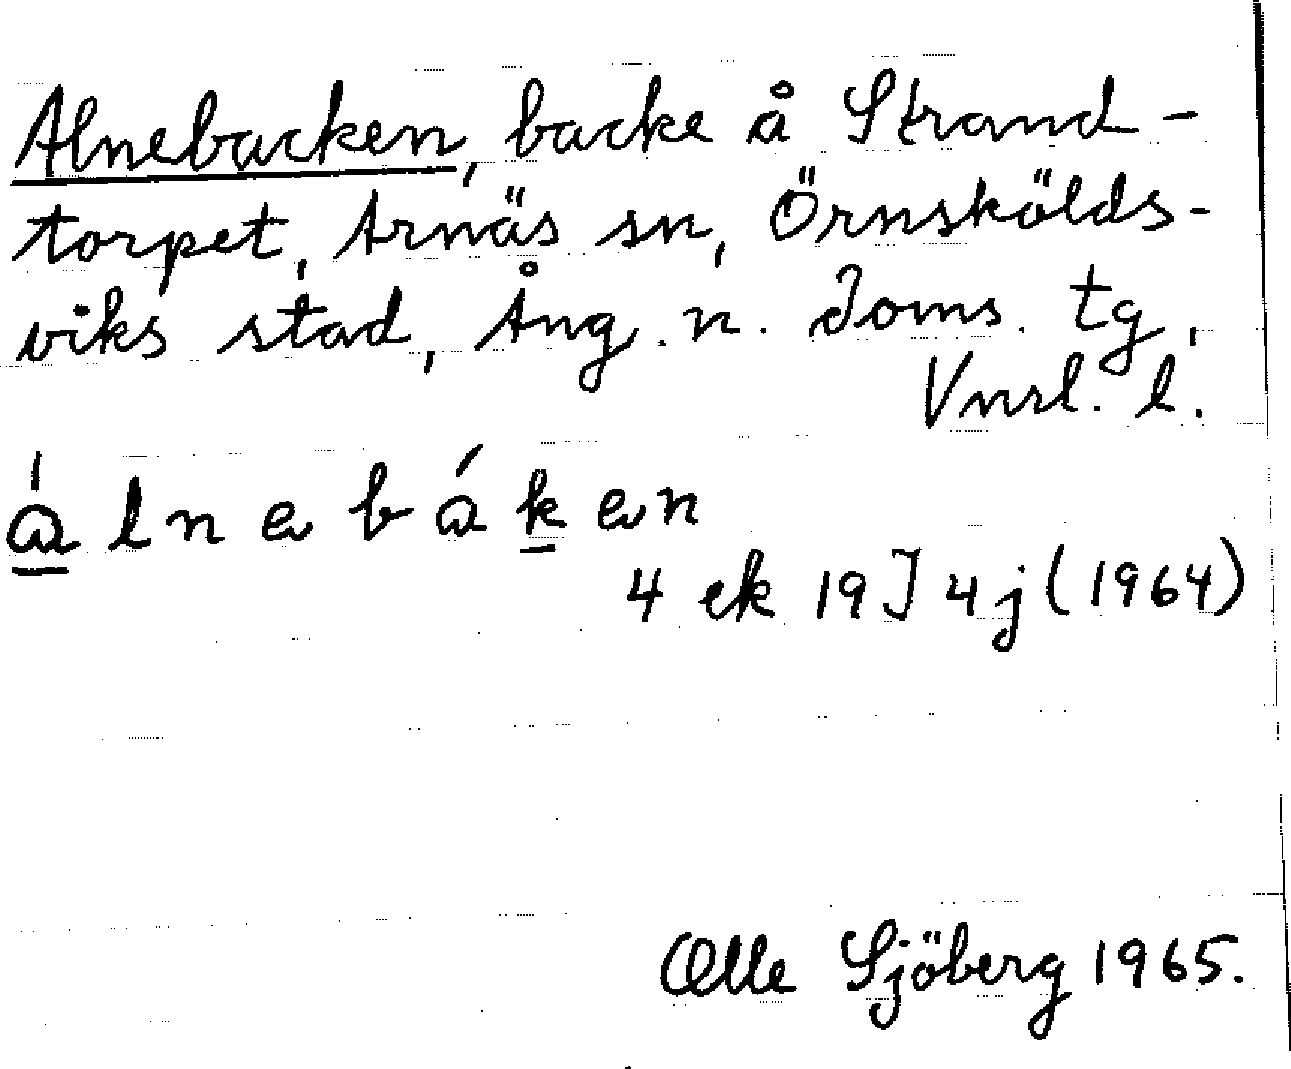 Alnebacken, backe å Strand-
torpet, Arnäs sn, Örnskölds-
viks stad, Ång. n. doms. tg,
Vnrl. l.
a̲̍ l n e b á k̲ e n
4 ek 19 J 4j (1964)
Olle Sjöberg 1965.